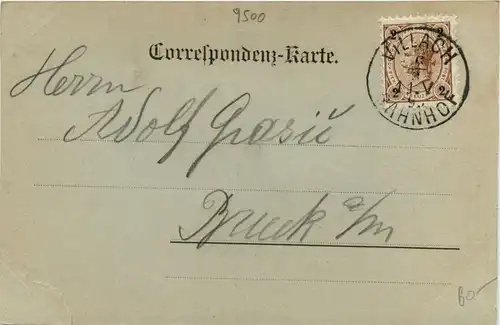 9500
Correspondenz-Karte.
VILLACH
BAHNHOF
Herrn
Adolf Grasič
Bruck a/m
60-